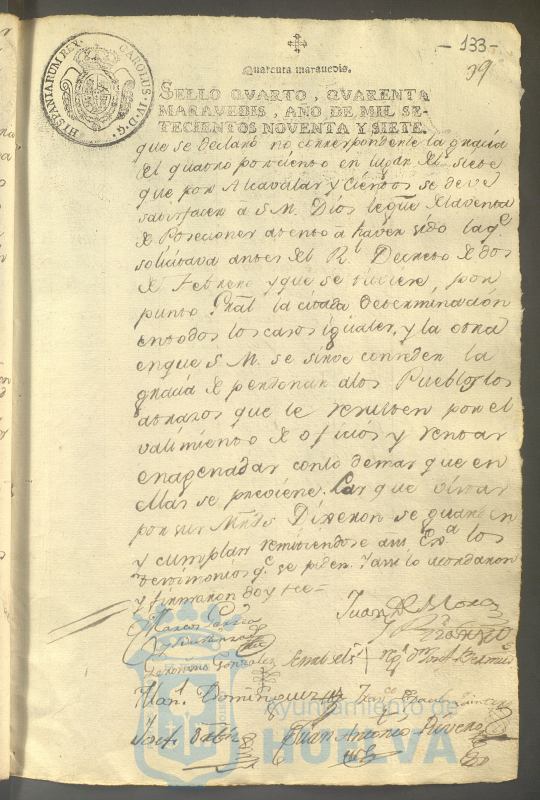 - 133 -
39
HISPANIARUM REX. CAROLUS IV D. G.
Quarenta maravedis.
SELLO QVARTO, QVARENTA
MARAVEDIS, AÑO DE MIL SE-
TECIENTOS NOVENTA Y SIETE.
que se declaró no correspondente la gracia
del quatro por ciento en lugar del siete
que por Alcavalas y Cientos se deve
satisfacer à S M. Dios le gue. de la venta
de Poseciones atento à haver sido la q.e
solicitava antes del Rl. Decreto de dos
de Febrero y que se tuviese, por
punto Gral. la citada determinacion
en todos los casos iguales, y la otra
en que S M. se sirve conceder la
gracia de perdonar a los Pueblos los
atrazos que le resulten por el
valimiento de oficios y rentas
enagenadas con lo demas que en
ellas se previene. Las que vistas
por sus Mrds Dixeron se guarden
y cumplan remitiendose a su Exa. los
testimonios q.e se piden. Y asi lo acordaron
y firmaron doy fee-
Juan
Marcos
Geronimo Gonzalez
Man.l Dominguez
Josef
Juan Antonio Rivero
Ayuntamiento de
HUELVA